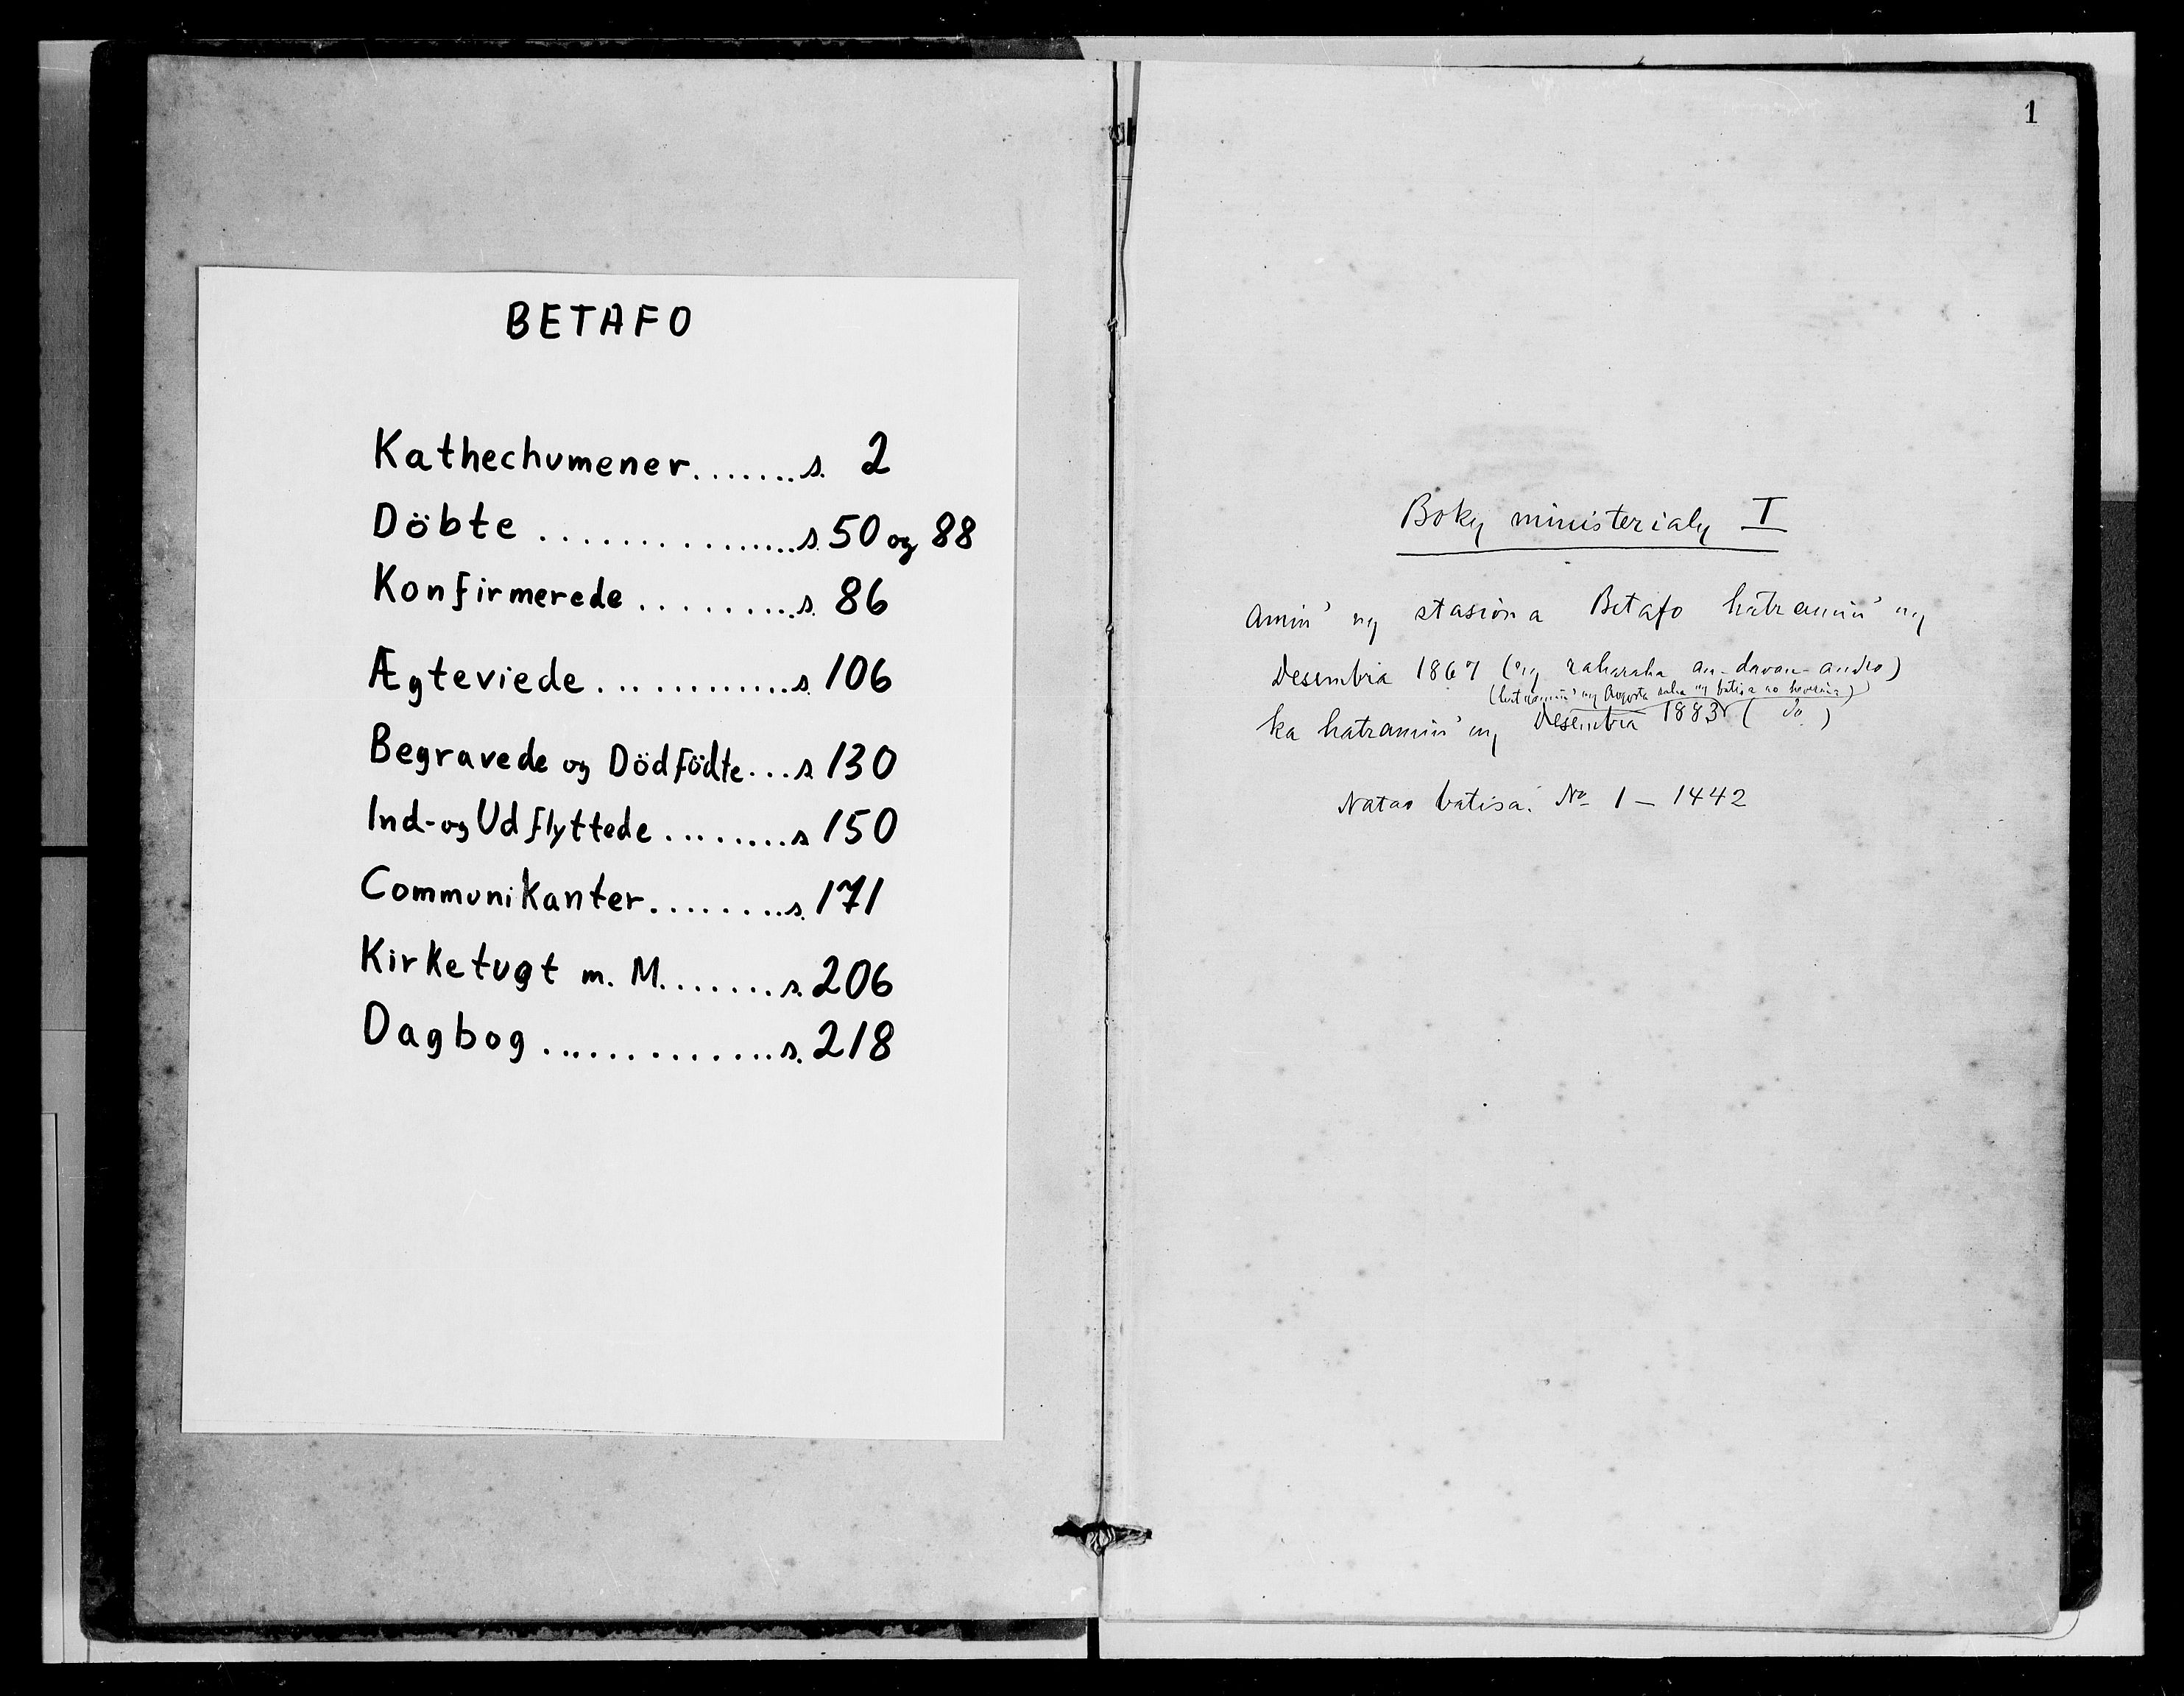 BETAFO
Kathechumener........s. 2
Döbte ................s. 50 og 88
Konfirmerede ..........s. 86
Ægteviede..............s. 106
Begravede og Dödfödte...s. 130
Ind- og Udflyttede.........s. 150
Communikanter.........s. 171
Kirketugt m. M........s. 206
Dagbog..............s. 218
1
Boky ministerialy I
Amin' ny stasiona Betafo hatramin' ny
Desembra 1867 (ny raharaha an-davan-andro)
(hatramin' ny Aogosta ny batisa no
ka hatramin' ny Desembra 1883 ( do )
Natao batisa: No 1 – 1442